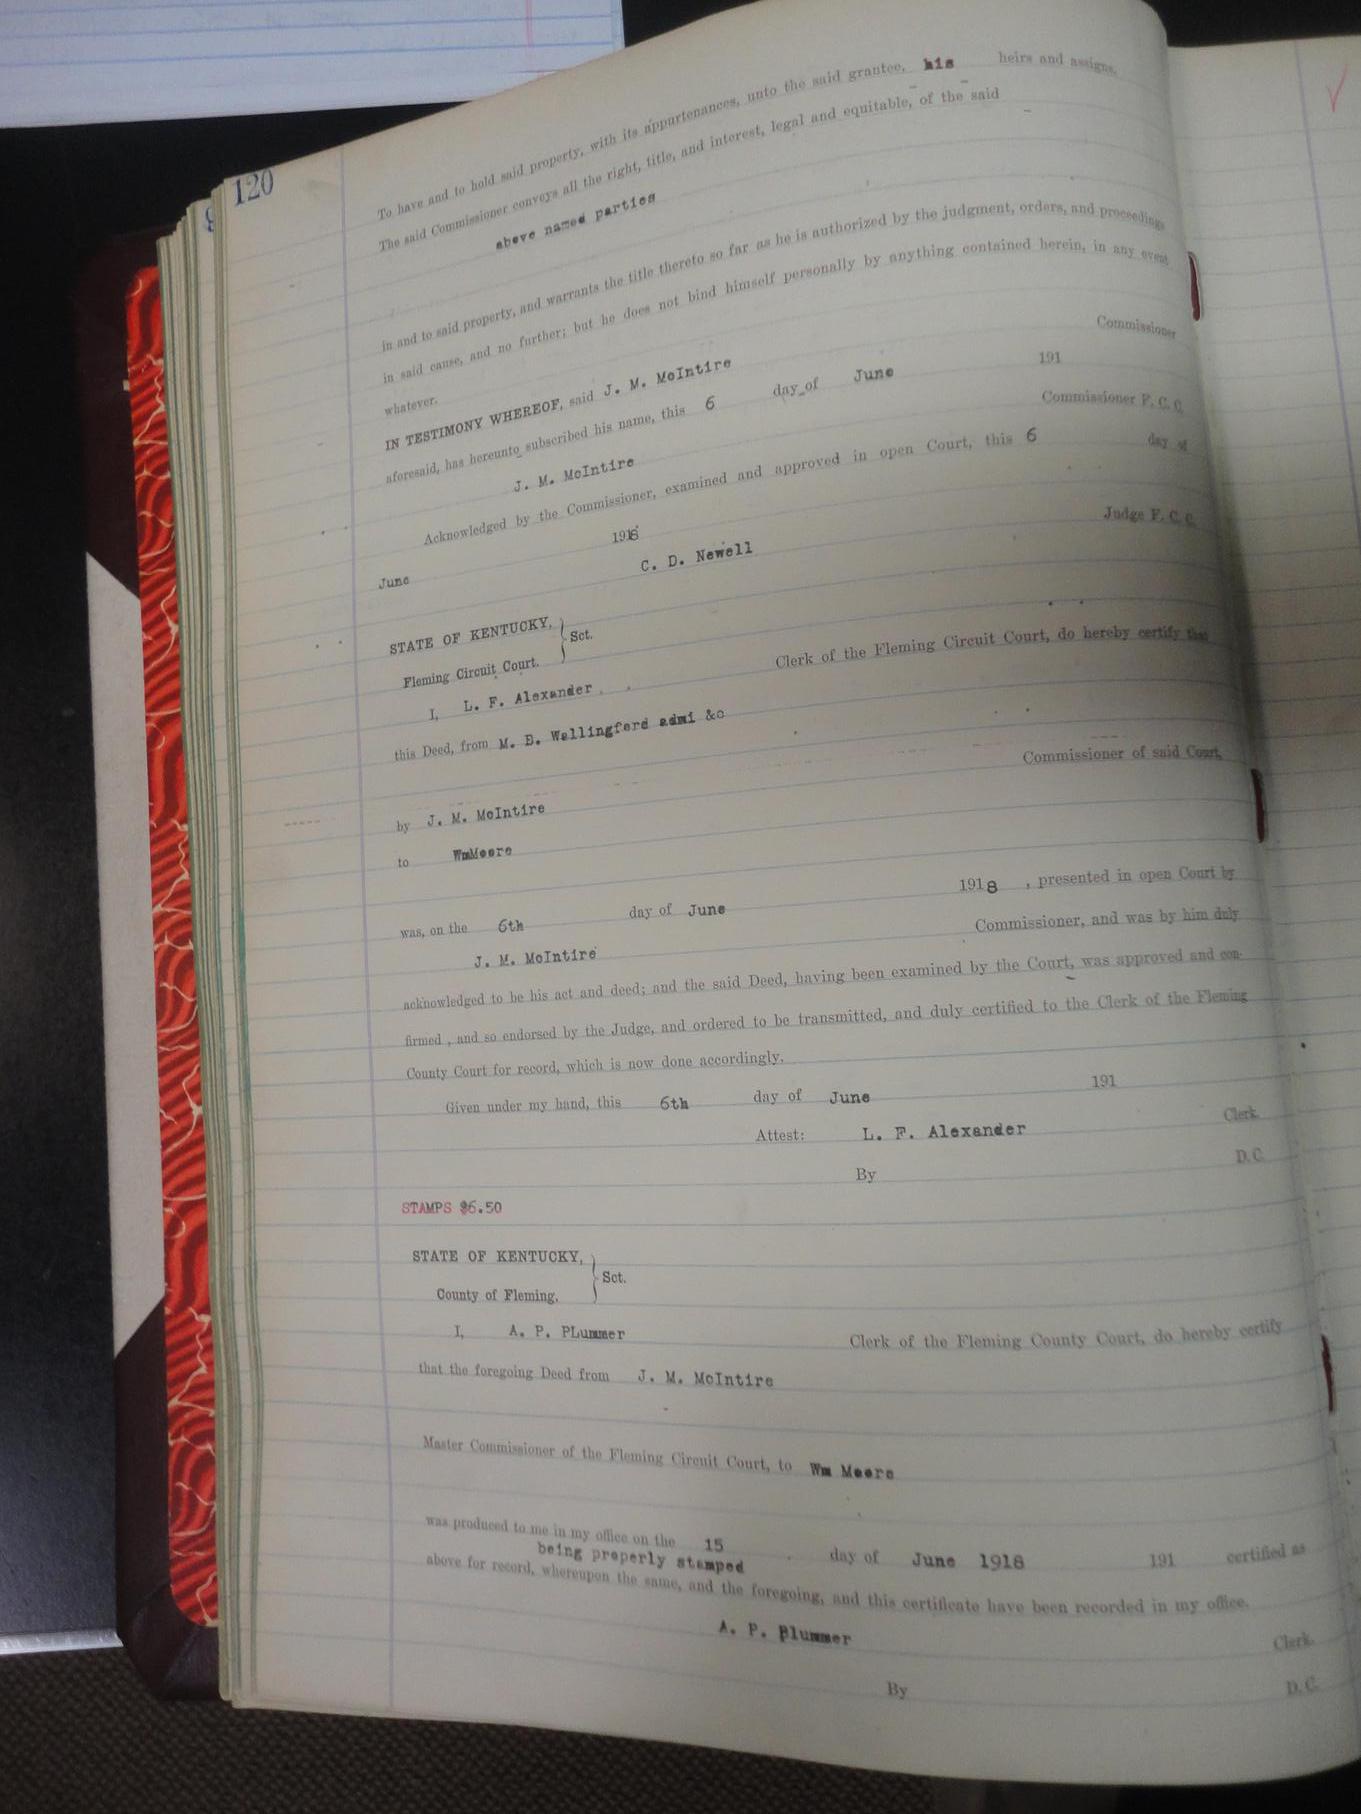 120
To have and to hold said property, with its appurtenances, unto the said grantee, his heirs and assigns,
The said Commissioner conveys all the right, title, and interest, legal and equitable, of the said
above named parties
in and to said property, and warrants the title thereto so far as he is authorized by the judgment, orders, and proceedings
in said cause, and no further; but he does not bind himself personally by anything contained herein, in any event
whatever.
IN TESTIMONY WHEREOF, said J. M. McIntire Commissioner
aforesaid, has hereunto subscribed his name, this 6 day of June 191
J. M. McIntire Commissioner F. C. C.
Acknowledged by the Commissioner, examined and approved in open Court, this 6 day of
June 1918
C. D. Newell Judge F. C. C.
STATE OF KENTUCKY,
Fleming Circuit Court. } Sct.
I, L. F. Alexander Clerk of the Fleming Circuit Court, do hereby certify that
this Deed, from M. E. Wallingford admi &c
Commissioner of said Court,
by J. M. McIntire
to WmMoore
was, on the 6th day of June 1918 , presented in open Court by
J. M. McIntire Commissioner, and was by him duly
acknowledged to be his act and deed; and the said Deed, having been examined by the Court, was approved and con-
firmed , and so endorsed by the Judge, and ordered to be transmitted, and duly certified to the Clerk of the Fleming
County Court for record, which is now done accordingly.
Given under my hand, this 6th day of June 191
Attest: L. F. Alexander Clerk.
By D. C.
STAMPS $6.50
STATE OF KENTUCKY,
County of Fleming. } Sct.
I, A. P. PLummer Clerk of the Fleming County Court, do hereby certify
that the foregoing Deed from J. M. McIntire
Master Commissioner of the Fleming Circuit Court, to Wm Moore
was produced to me in my office on the 15 day of June 1918 191 certified as
being properly stamped
above for record, whereupon the same, and the foregoing, and this certificate have been recorded in my office.
A. P. Plummer Clerk.
By D. C.